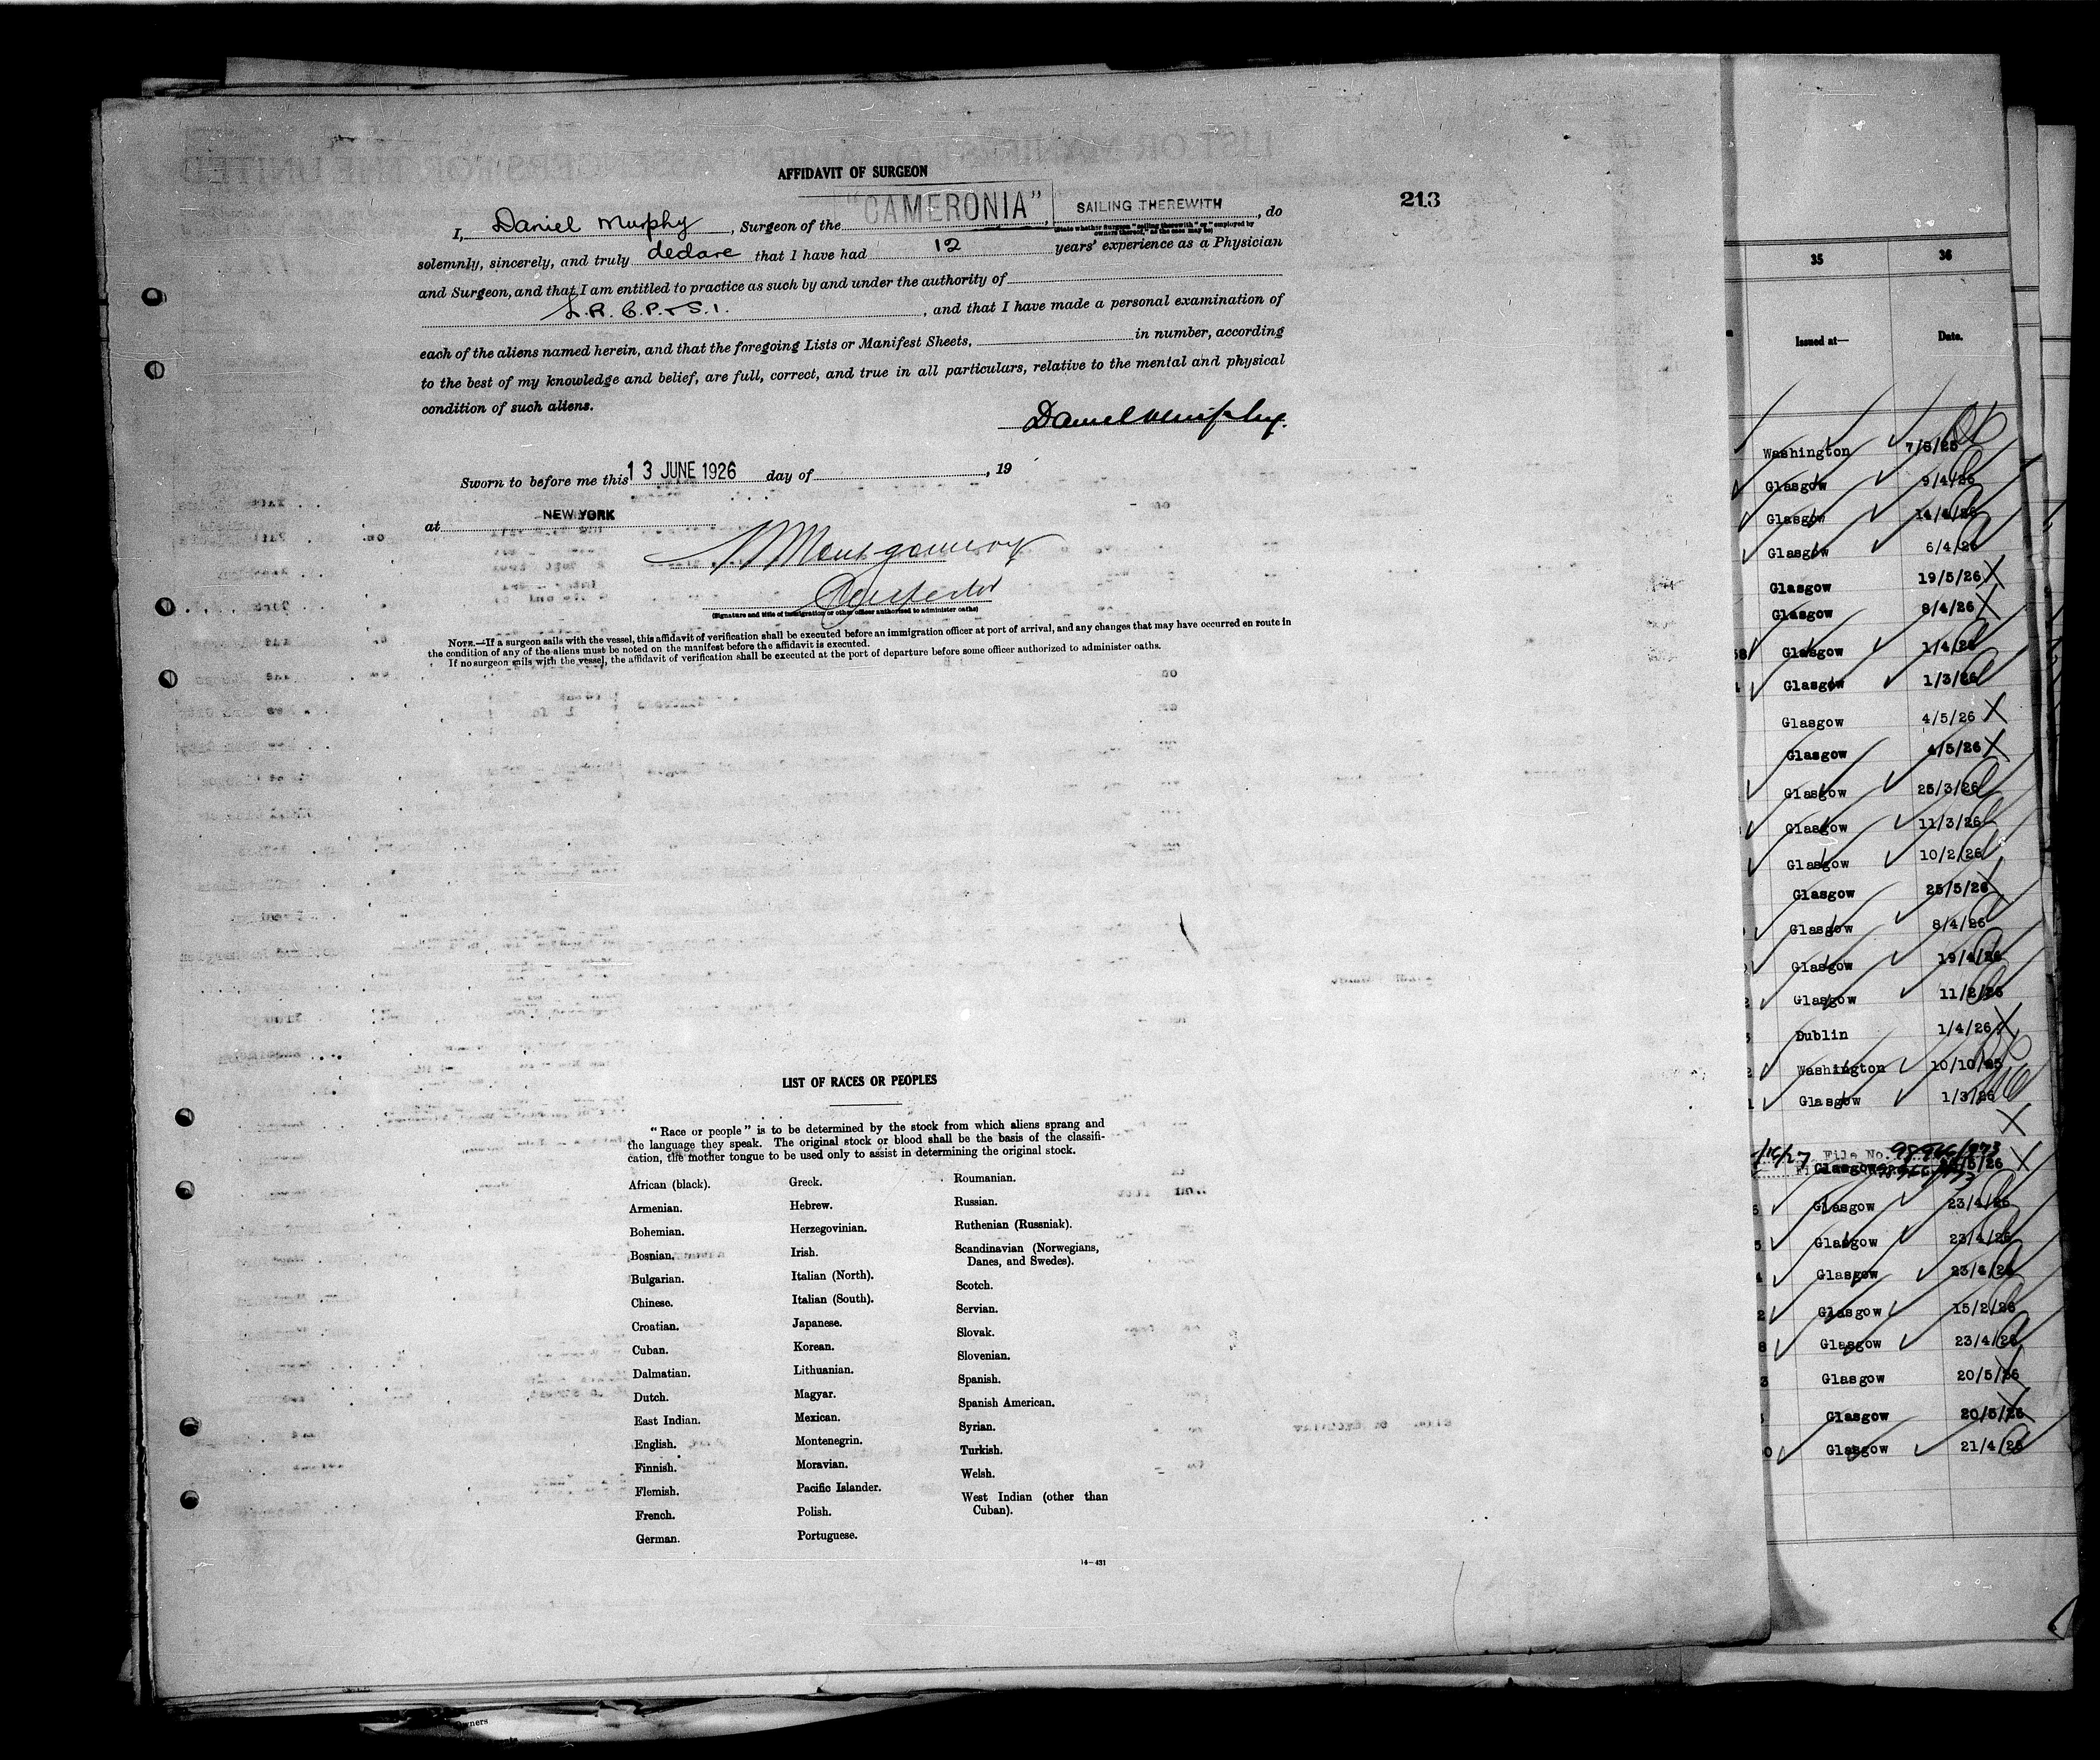 AFFIDAVIT OF SURGEON
213
I, Daniel Murphy, Surgeon of the "CAMERONIA", SAILING THEREWITH, do
(State whether Surgeon "sailing therewith" or "employed by
owners thereof," as the case may be)
solemnly, sincerely, and truly declare that I have had 12 years' experience as a Physician
and Surgeon, and that I am entitled to practice as such by and under the authority of
L.R.C.P. & S.I., and that I have made a personal examination of
each of the aliens named herein, and that the foregoing Lists or Manifest Sheets, in number, according
to the best of my knowledge and belief, are full, correct, and true in all particulars, relative to the mental and physical
condition of such aliens.
Daniel Murphy.
Sworn to before me this 13 JUNE 1926 day of , 19
at NEW YORK
Montgomery
(Signature and title of immigration or other officer authorized to administer oaths)
NOTE.—If a surgeon sails with the vessel, this affidavit of verification shall be executed before an immigration officer at port of arrival, and any changes that may have occurred en route in
the condition of any of the aliens must be noted on the manifest before the affidavit is executed.
If no surgeon sails with the vessel, the affidavit of verification shall be executed at the port of departure before some officer authorized to administer oaths.
LIST OF RACES OR PEOPLES
"Race or people" is to be determined by the stock from which aliens sprang and
the language they speak. The original stock or blood shall be the basis of the classifi-
cation, the mother tongue to be used only to assist in determining the original stock.
African (black).
Armenian.
Bohemian.
Bosnian.
Bulgarian.
Chinese.
Croatian.
Cuban.
Dalmatian.
Dutch.
East Indian.
English.
Finnish.
Flemish.
French.
German.
Greek.
Hebrew.
Herzegovinian.
Irish.
Italian (North).
Italian (South).
Japanese.
Korean.
Lithuanian.
Magyar.
Mexican.
Montenegrin.
Moravian.
Pacific Islander.
Polish.
Portuguese.
Roumanian.
Russian.
Ruthenian (Russniak).
Scandinavian (Norwegians,
Danes, and Swedes).
Scotch.
Servian.
Slovak.
Slovenian.
Spanish.
Spanish American.
Syrian.
Turkish.
Welsh.
West Indian (other than
Cuban).
14—431
35 36
Issued at— Date.
Washington
Glasgow 9/4/26
Glasgow 14/4/26
Glasgow 6/4/26
Glasgow 19/5/26 X
Glasgow 8/4/26 X
Glasgow 1/4/26
Glasgow 1/3/26
Glasgow 4/5/26 X
Glasgow 4/5/26 X
Glasgow 25/3/26
Glasgow 11/3/26
Glasgow 10/2/26
Glasgow 25/5/26 X
Glasgow 8/4/26
Glasgow 19/4/26
Glasgow 11/2/26
Dublin 1/4/26 X
Washington 10/10/25
Glasgow 1/3/26
X
File No.
Glasgow
Glasgow 23/4/26
Glasgow 23/4/26
Glasgow 23/4/26
Glasgow 15/2/26
Glasgow 23/4/26
Glasgow 20/5/26
Glasgow 20/5/26
Glasgow 21/4/26